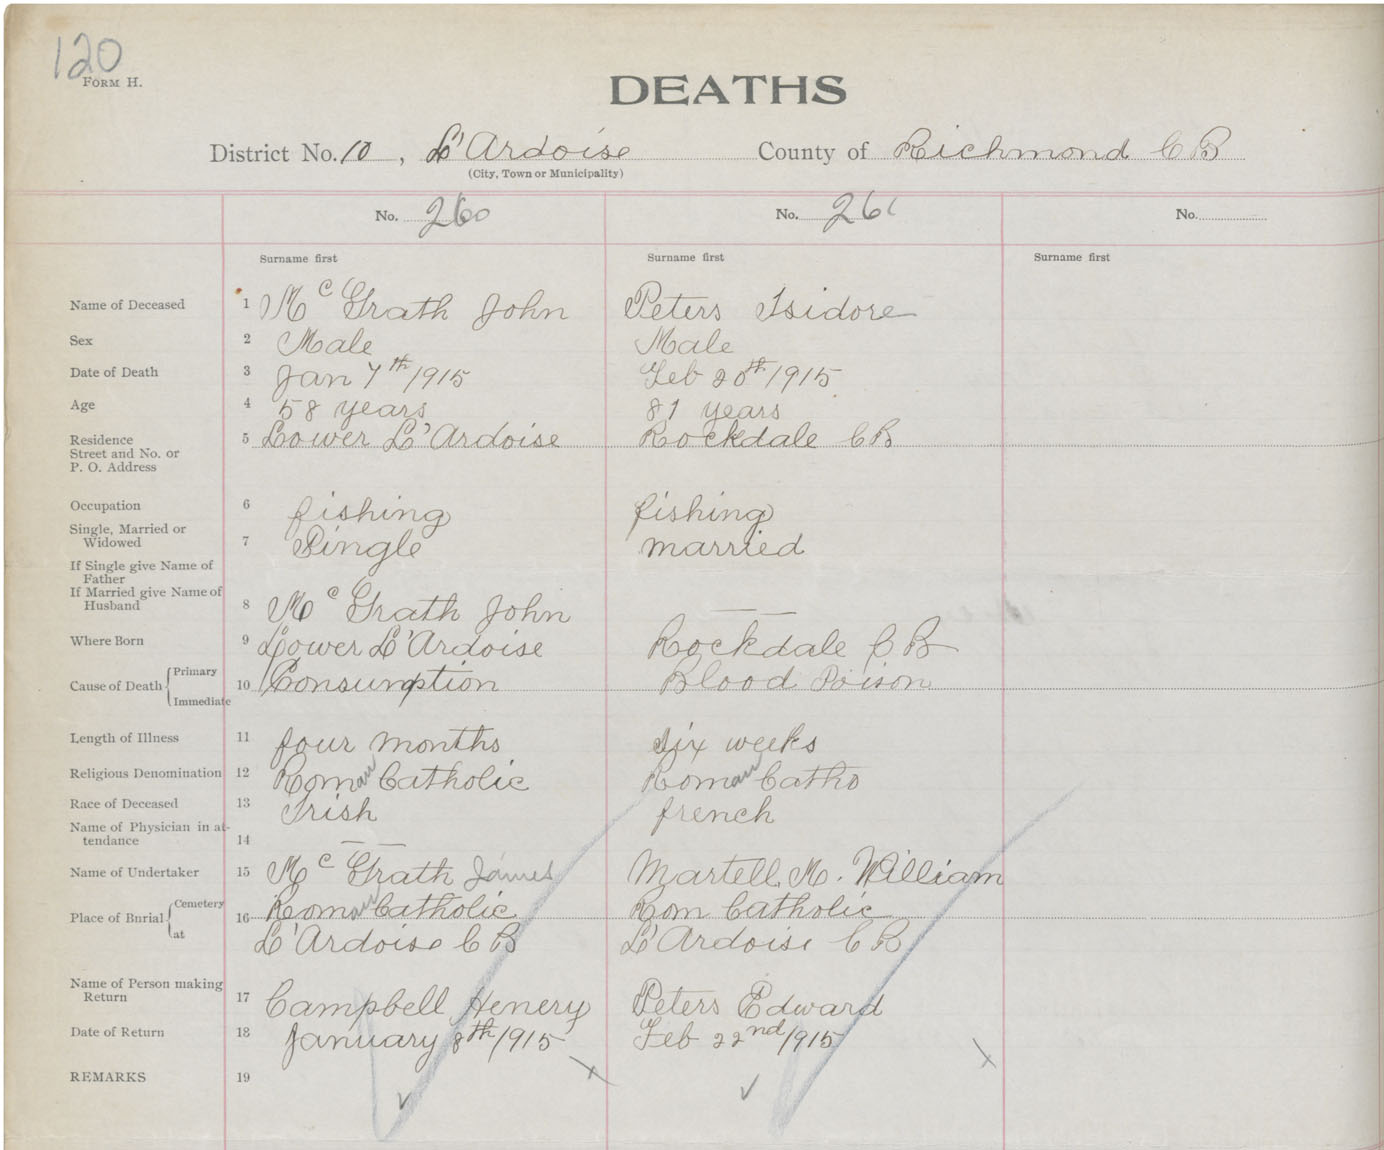 120
FORM H.
DEATHS
District No. 10, L'Ardoise County of Richmond C B
(City, Town or Municipality)
No. 260 No. 261 No.
Surname first Surname first Surname first
Name of Deceased 1 Mc Grath John Peters Isidore
Sex 2 Male Male
Date of Death 3 Jan 7th/1915 Feb 20th/1915
Age 4 58 years 81 years
Residence 5 Lower L'Ardoise Rockdale C B
Street and No. or
P. O. Address
Occupation 6 fishing fishing
Single, Married or
Widowed 7 Single married
If Single give Name of
Father
If Married give Name of
Husband 8 Mc Grath John — —
Where Born 9 Lower L'Ardoise Rockdale C B
Cause of Death { Primary
10 Consumption Blood Poison
Immediate
Length of Illness 11 four months six weeks
Religious Denomination 12 Roman Catholic Roman Catho
Race of Deceased 13 Irish french
Name of Physician in at-
tendance 14 — —
Name of Undertaker 15 Mc Grath James Martell. M. William
Place of Burial { Cemetery
16 Roman Catholic Rom Catholic
at L'Ardoise C B L'Ardoise C B
Name of Person making
Return 17 Campbell Henery Peters Edward
Date of Return 18 January 8th/1915 Feb 22nd/1915
REMARKS 19